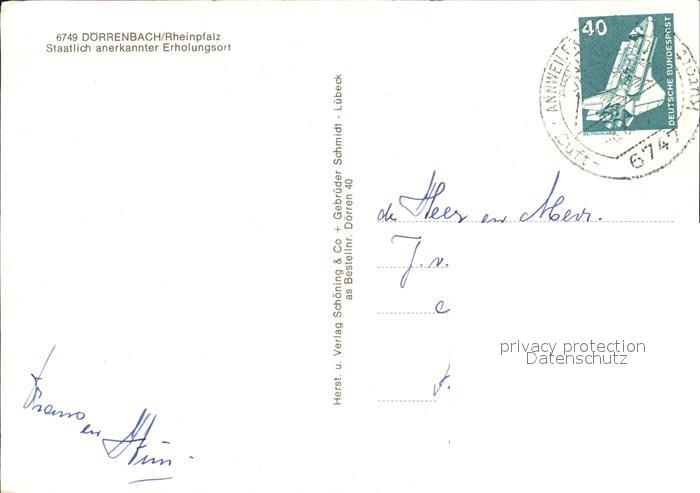 6749 DÖRRENBACH/Rheinpfalz
Staatlich anerkannter Erholungsort
40
DEUTSCHE BUNDESPOST
ANNWEILER
Luft-
6747
Herst. u. Verlag Schöning & Co + Gebrüder Schmidt - Lübeck
as Bestellnr. Dörren 40
de Heer en Mevr.
J. v.
privacy protection
Datenschutz
en